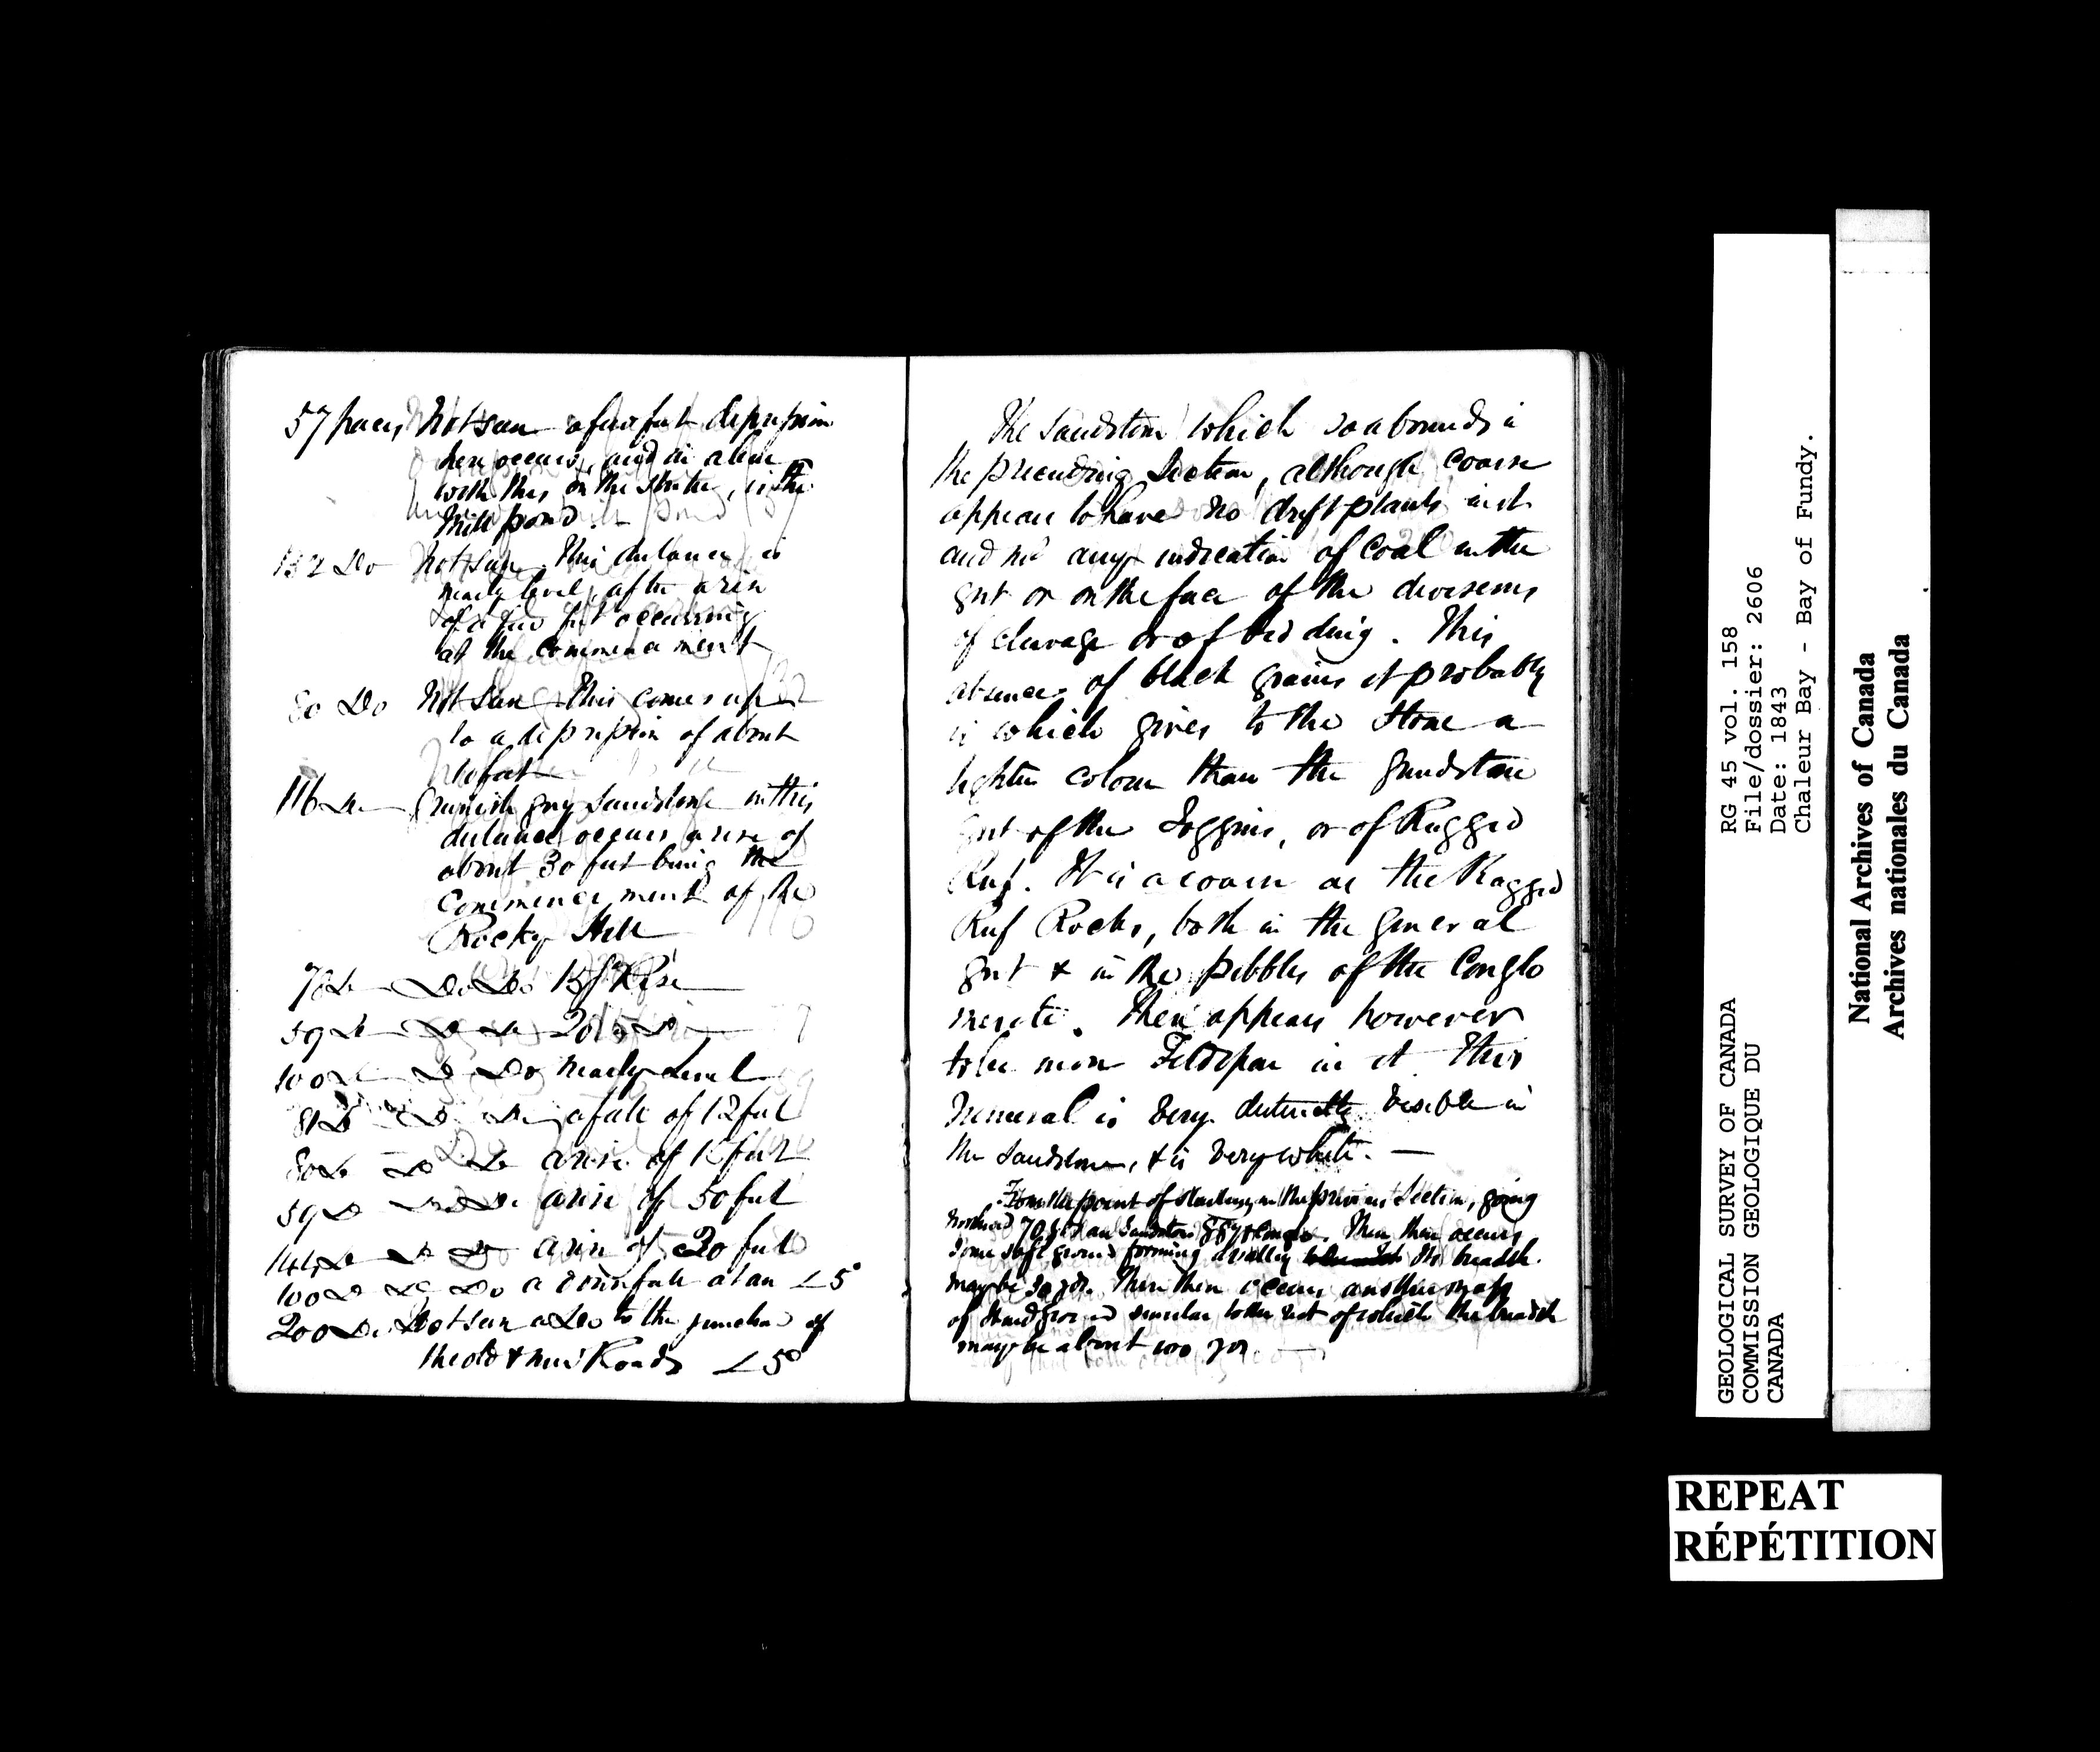 57 paces, Not seen a few feet depression
here occurs, and in a line
with this on the strike, is the
Mill pond.
132 Do Not seen. This distance is
nearly level, after a rise
of a few feet occurring
at the commencement
80 Do Not seen This comes up
to a depression of about
feet
116 Do Greenish grey sandstone in this
distance occurs a rise of
about 30 feet being the
commencement of the
Rocky Hill
78 Do Do Do 15 ft Rise
59 Do Do Do 20 Do
100 Do Do Do nearly Level
81 Do Do Do a fall of 12 feet
80 Do Do Do a rise of feet
59 Do Do Do a rise of 50 feet
144 Do Do Do a rise of 20 feet
100 Do Do Do a down fall at an ∠ 5°
200 Do Not seen a Do to the junction of
the old & new Roads ∠ 5°
The Sandstone which so abounds in
the preceeding Section, although coarse
appears to have no drift plants in it
and no any indication of Coal in the
grit or on the face of the divisions
of cleavage or of bedding. This
absence of black grains it probably
is which gives to the Stone a
lighter colour than the grindstone
grit of the Joggins, or of Ragged
Reef. It is as coarse as the Ragged
Reef Rocks, both in the general
grit & in the pebbles of the Conglo
merate. There appears however
to be more Feldspar in it This
mineral is very distinctly visible in
the Sandstone, & is very white. —
From the point of starting in the previous Section, going
Northward 70 yds Sandstone Then there occurs
some soft ground forming a valley the breadth
may be 30 yds. There then occurs another mass
of hard ground similar to the rest of which the breadth
may be about 100 yds. —
GEOLOGICAL SURVEY OF CANADA
COMMISSION GEOLOGIQUE DU
CANADA
RG 45 vol. 158
File/dossier: 2606
Date: 1843
Chaleur Bay - Bay of Fundy.
National Archives of Canada
Archives nationales du Canada
REPEAT
RÉPÉTITION